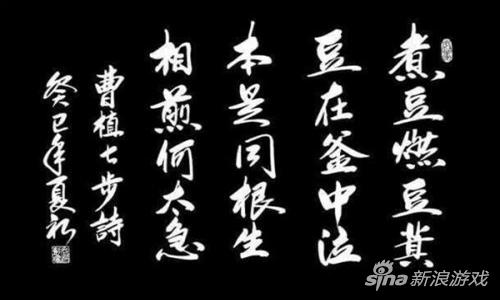 煮豆燃豆萁
豆在釜中泣
本是同根生
相煎何太急
曹植七步詩
癸巳年夏
sina新浪游戏